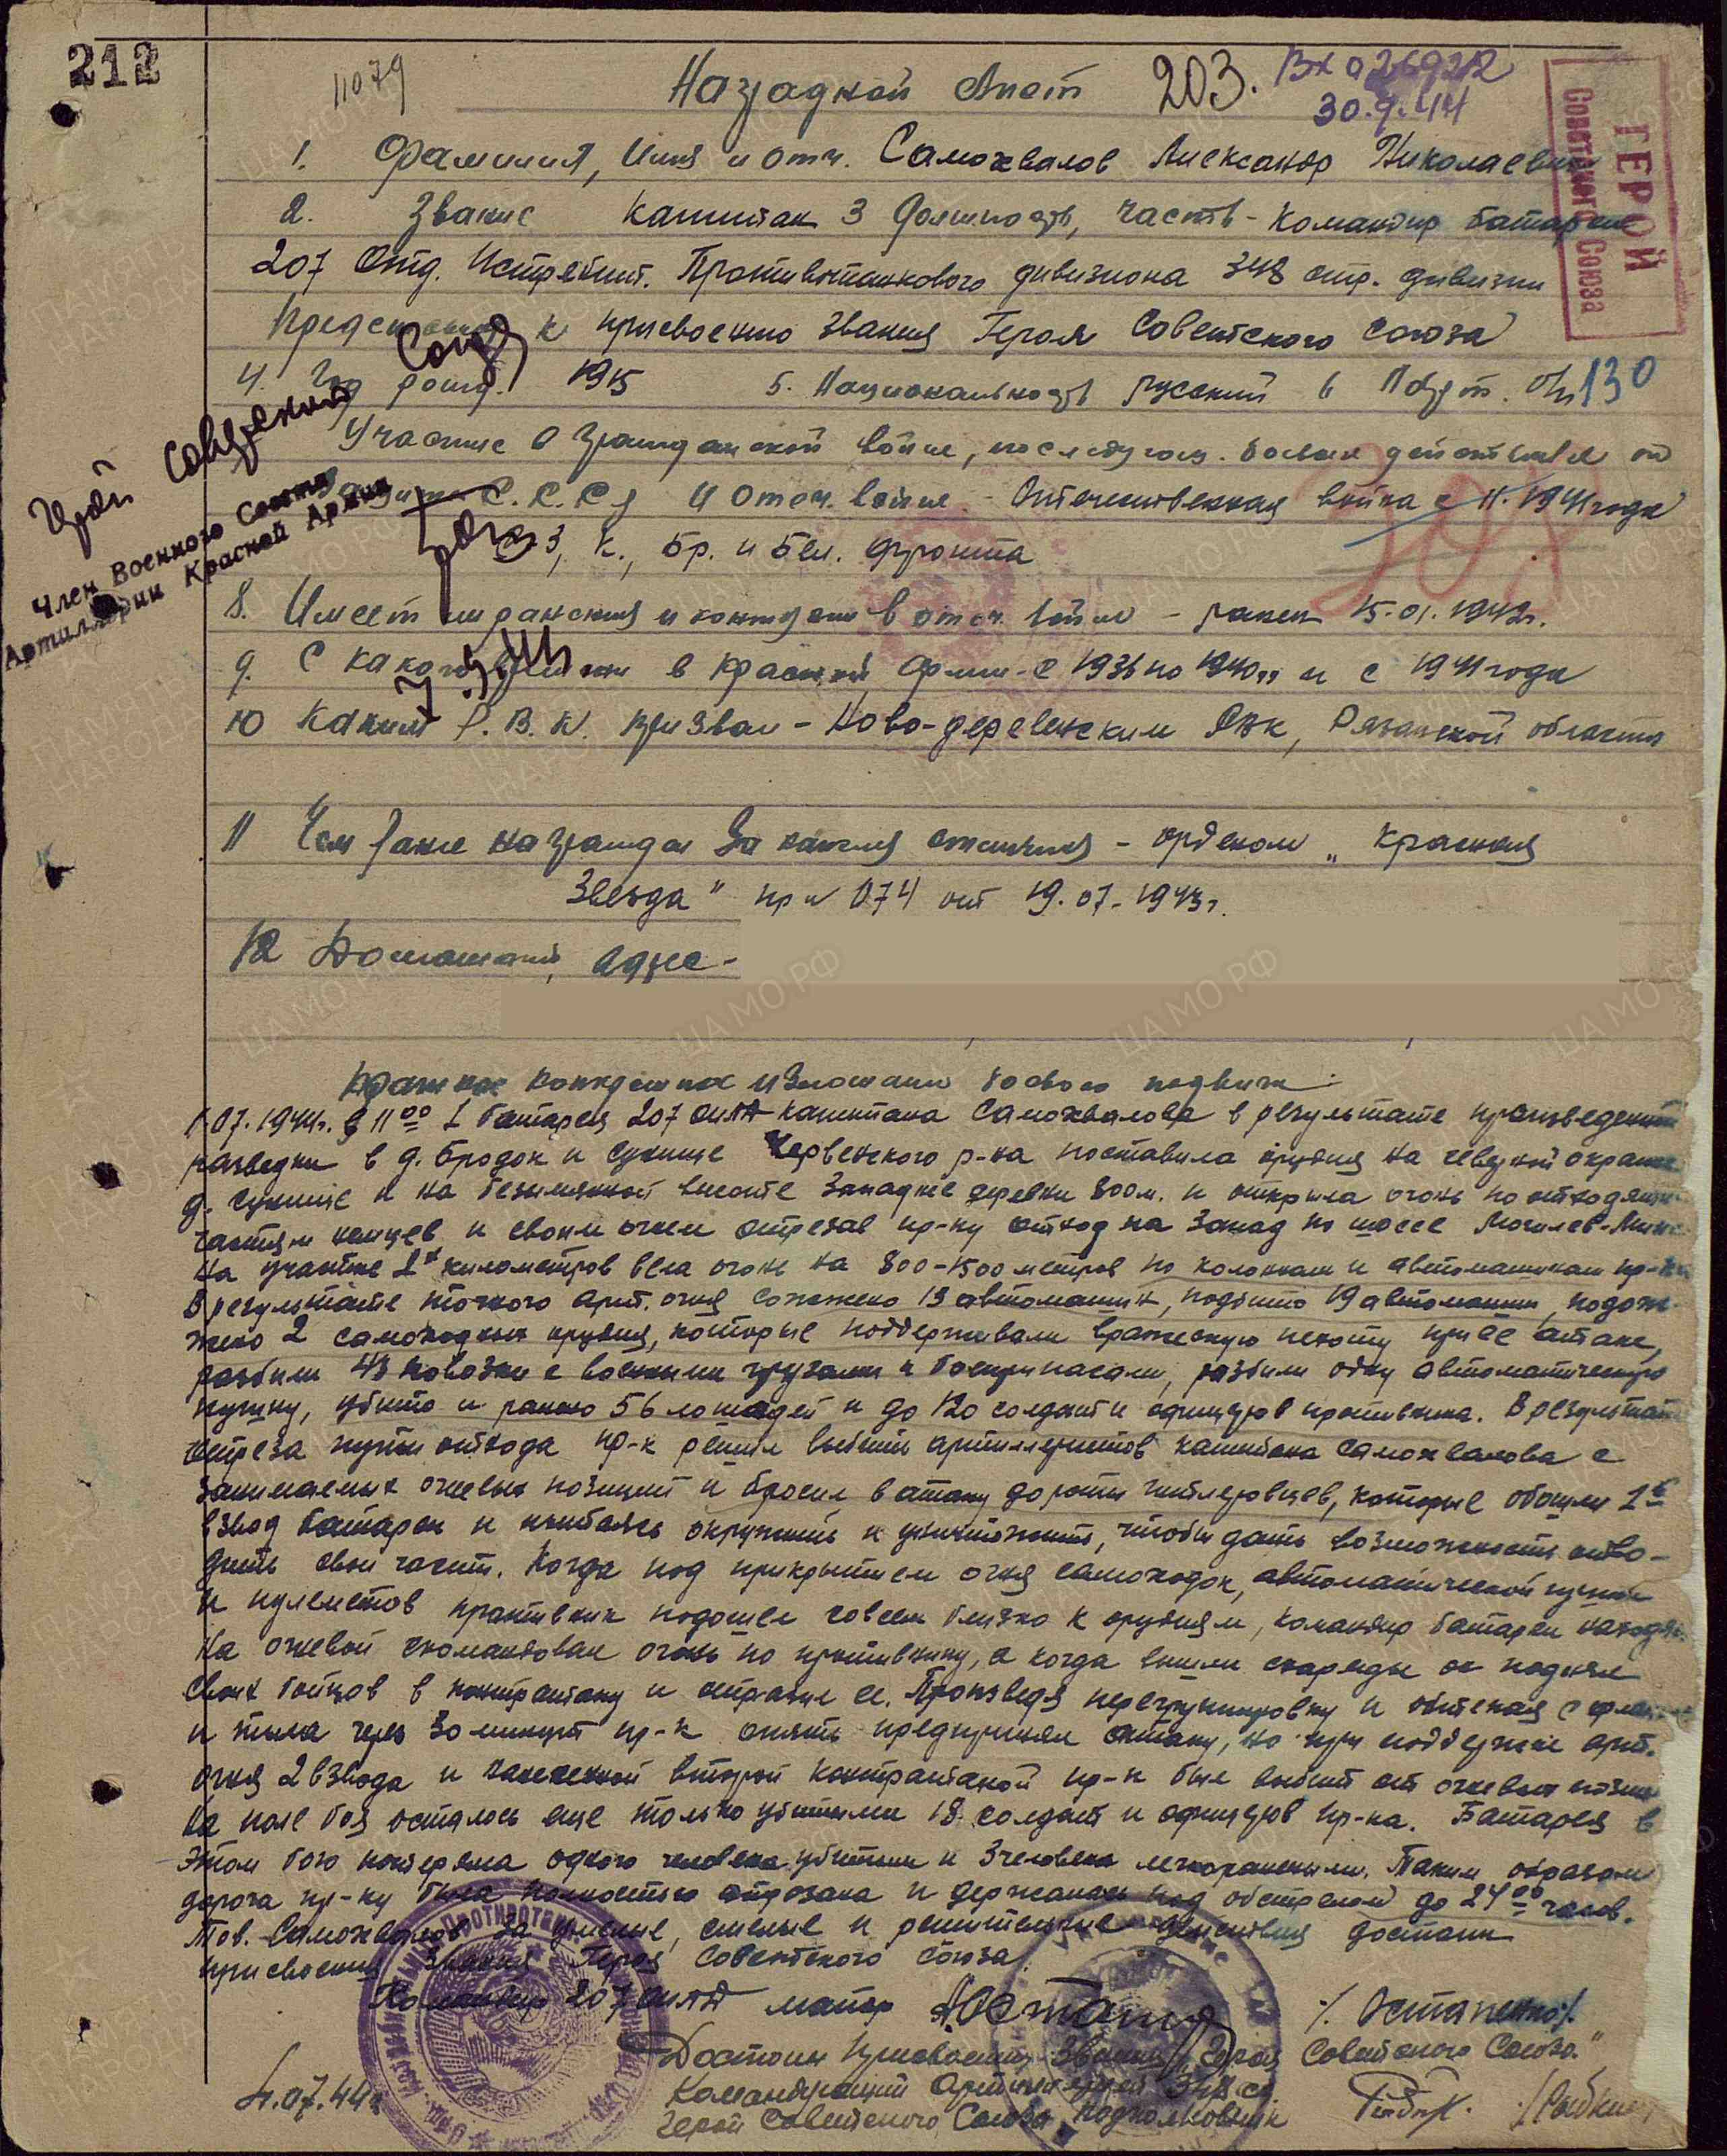 212
11079
Наградной Лист 203. Вх 026922
30.9.44
ГЕРОЙ
Советского Союза
1. Фамилия, Имя и отч. Самохвалов Александр Николаевич
2. Звание Капитан 3 Должность, часть - Командир батареи
207 Отд. Истребит. Противотанкового дивизиона 348 стр. дивизии
к присвоению звания Героя Советского Союза
4. Год рожд. 1915 5. Национальность русский 6 Парт. 130
Участие в гражданской войне, последующ. боевых действиях по
защите С.С.С.Р и отеч. войне - Отечественная война с 11.1941 года
З, К., Бр. и Бел. фронта
Герой Советский Союза
Член Военного Совета
Артиллерии Красной Армии
8. Имеет ли ранения и контузии в отеч. войне - ранен 15.01.1942г.
9. С какого времени в красной армии - с 1936 по 1940 г. и с 1941 года
10 Каким Р.В.К. призван - Ново-деревенским РВК, Рязанской области
11 Чем ранее награжден За какие отличия - орденом „Красная
Звезда" пр № 074 от 19.07.1943г.
12 Домашний адрес -
Краткое конкретное изложение боевого подвига:
1.07.1944г. в 11 00 1 батарея 207 ОИПТД капитана Самохвалова в результате произведенной
разведки в д. Бродок и Сукище Червенского р-на поставила орудия на северной окраине
д. Сукище и на безымянной высоте Западнее деревни 800м. и открыла огонь по отходящим
частям немцев и своим огнем отрезав пр-ку отход на Запад по шоссе Могилев-Минск
На участке 2х километров вела огонь на 800-1500 метров по колоннам и автомашинам пр-ка
В результате точного арт. огня сожжено 13 автомашин, подбито 19 автомашин, подож-
жено 2 самоходных орудия, которые поддерживали вражескую пехоту при ее атаке,
разбили 43 повозки с военными грузами и боеприпасами, разбили одну автоматическую
пушку, убито и ранено 56 лошадей и до 120 солдат и офицеров противника. В результате
отреза пути отхода пр-к решил выбить артиллеристов капитана Самохвалова с
занимаемых огневых позиций и бросил в атаку до роты гитлеровцев, которые обошли 1й
взвод батареи и пытаясь окружить и уничтожить, чтобы дать возможность отво-
дить свои части. Когда под прикрытием огня самоходок, автоматической пушки
и пулеметов противник подошел совсем близко к орудиям, командир батареи находясь
на огневой скомандовал огонь по противнику, а когда вышли снаряды он поднял
своих бойцов в контратаку и отразил ее. Произведя перегруппировку и обтекая с фланга
и тыла через 30 минут пр-к опять предпринял атаку, но при поддержке арт.
огня 2 взвода и нанесенной второй контратакой пр-к был выбит от огневых позиций
На поле боя осталось еще только убитыми 18 солдат и офицеров пр-ка. Батарея в
этом бою потеряла одного человека убитым и 3 человека легкоранеными. Таким образом
дорога пр-ку была полностью отрезана и держалась под обстрелом до 24 00 часов.
Тов. Самохвалов за умелые, смелые и решительные действия достоин
присвоения звания Героя Советского Союза.
Командир 207 ОИПТД майор /Остапенко/.
Достоин Присвоения Звания „Героя Советского Союза"
4.07.44г. Командующий Артиллерией 348 сд.
Герой Советского Союза подполковник